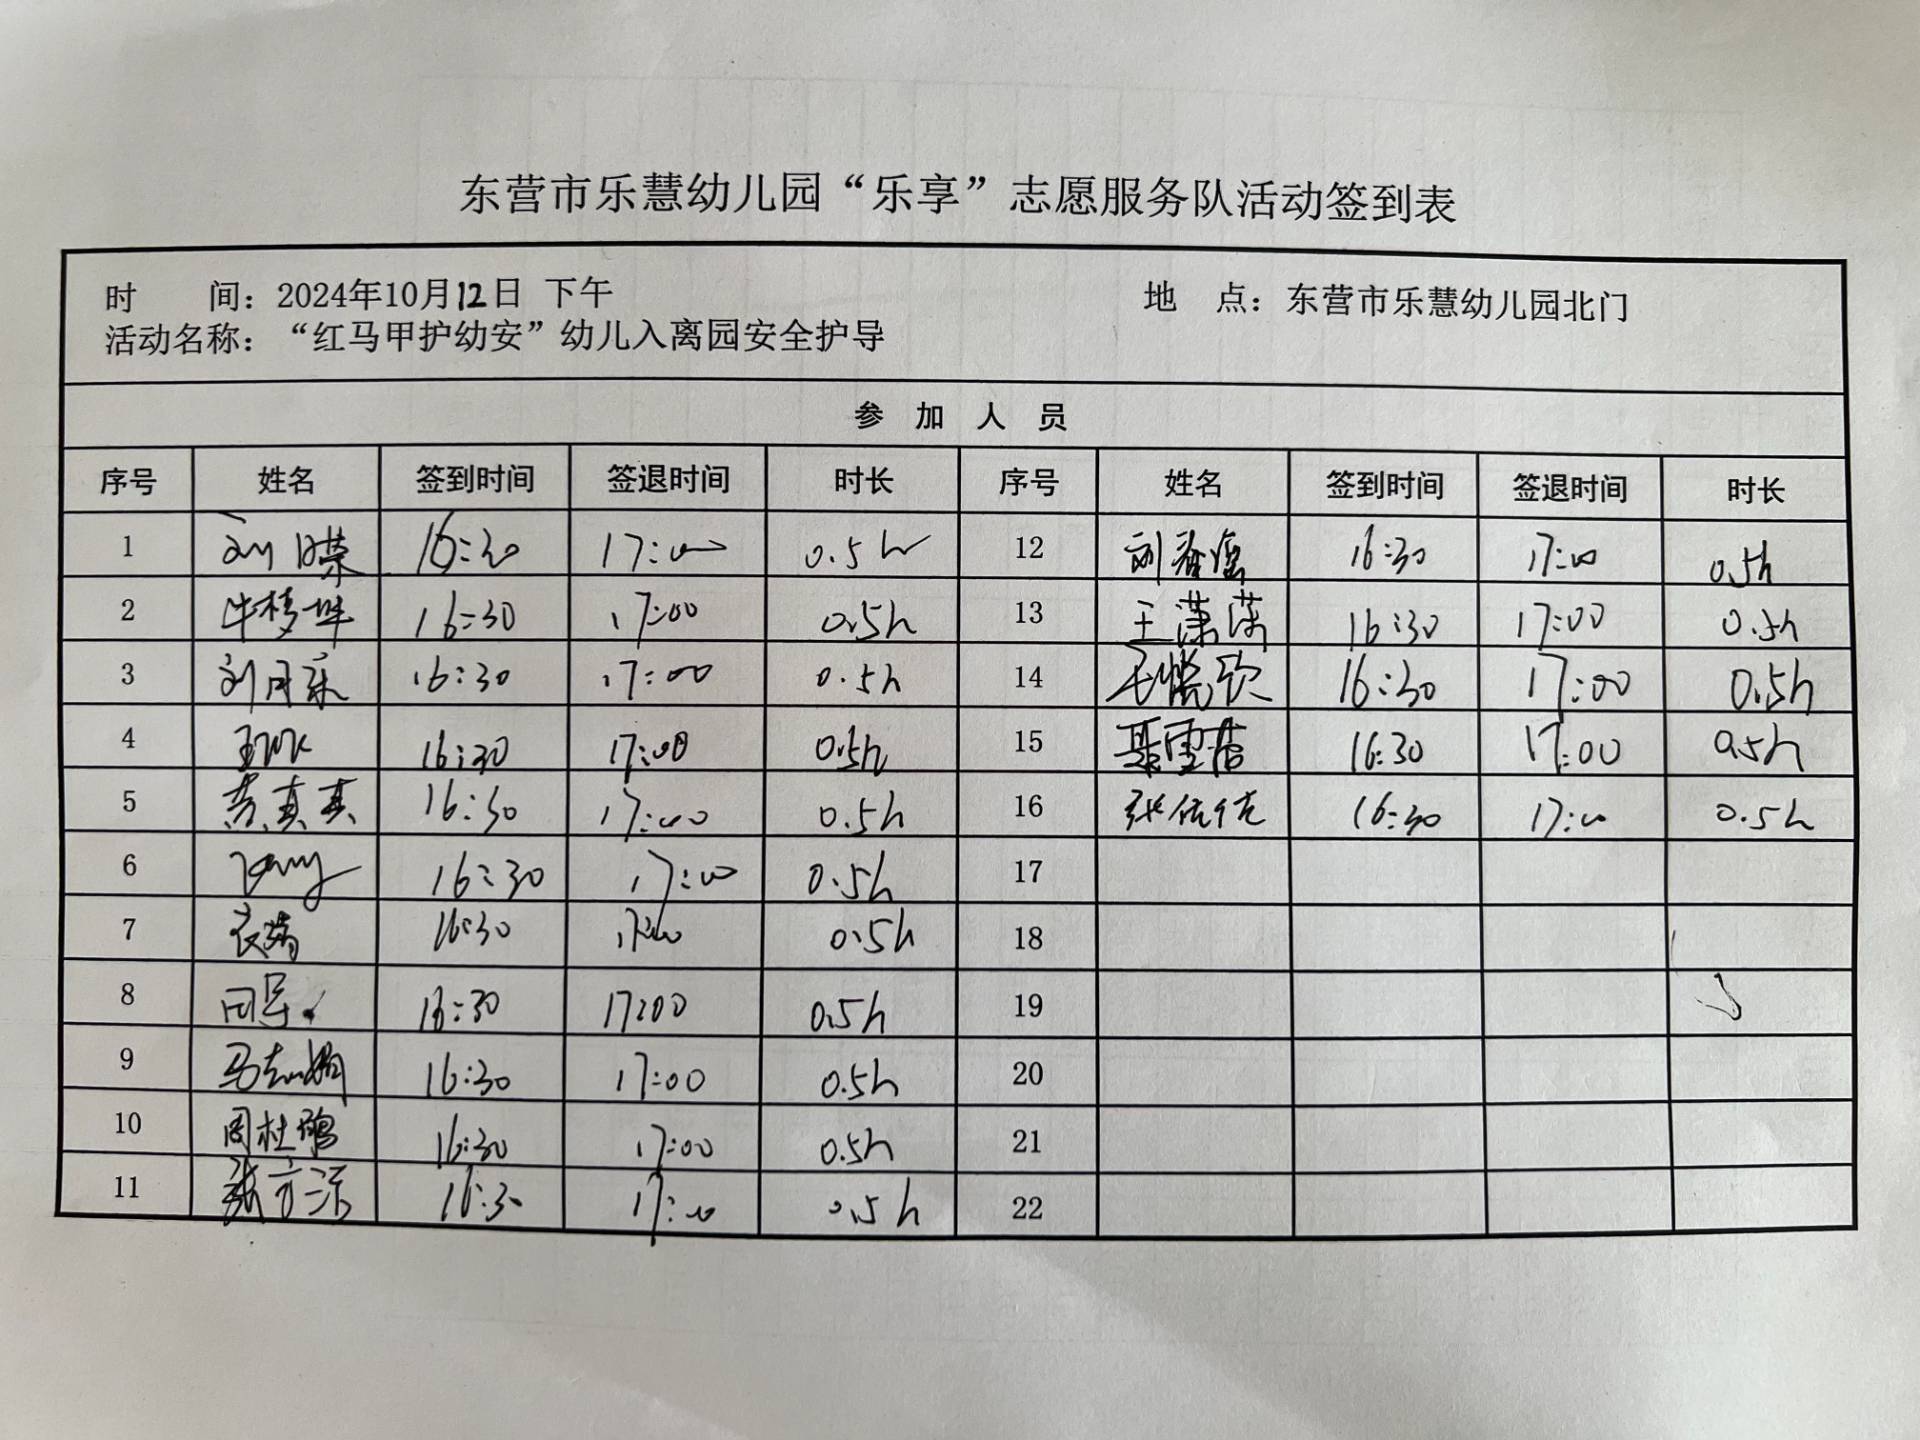 东营市乐慧幼儿园“乐享”志愿服务队活动签到表
时 间：2024年10月12日 下午 地 点：东营市乐慧幼儿园北门
活动名称：“红马甲护幼安”幼儿入离园安全护导
参 加 人 员
序号 姓名 签到时间 签退时间 时长 序号 姓名 签到时间 签退时间 时长
1 16:30 17:00 0.5h 12 16:30 17:00 0.5h
2 牛梦坤 16:30 17:00 0.5h 13 王潇潇 16:30 17:00 0.5h
3 刘月乐 16:30 17:00 0.5h 14 16:30 17:00 0.5h
4 16:30 17:00 0.5h 15 聂雪 16:30 17:00 0.5h
5 黄真真 16:30 17:00 0.5h 16 张 16:30 17:00 0.5h
6 16:30 17:00 0.5h 17
7 16:30 17:00 0.5h 18
8 16:30 17:00 0.5h 19
9 马志娟 16:30 17:00 0.5h 20
10 周杜鹃 16:30 17:00 0.5h 21
11 张 16:30 17:00 0.5h 22